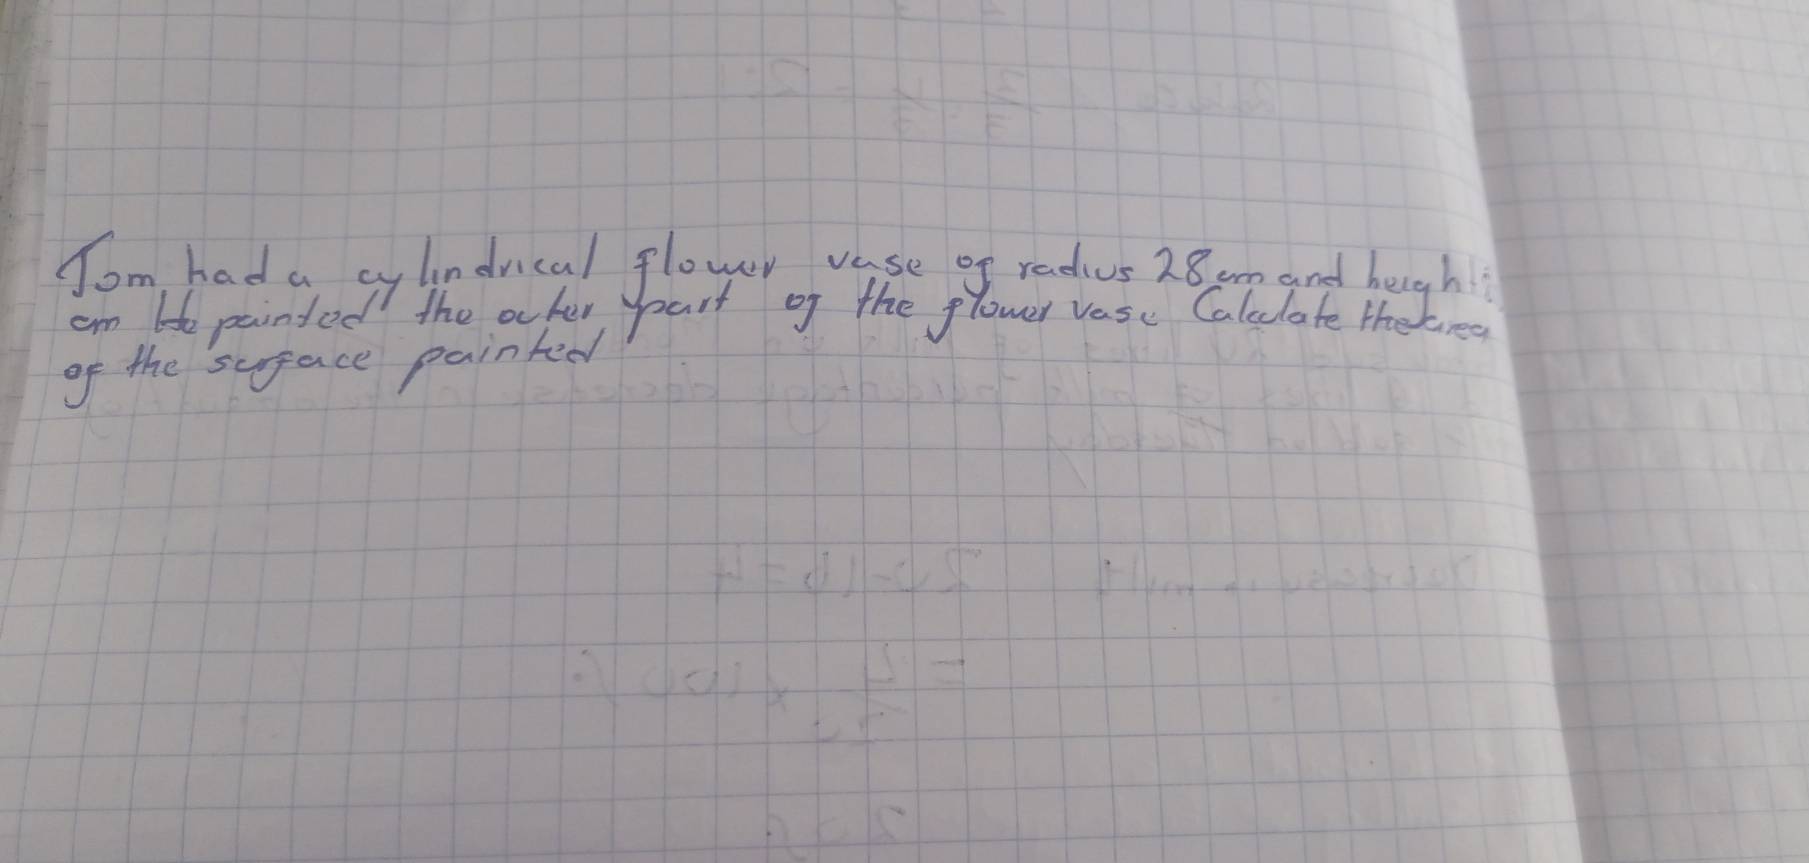 Tom had a cylindrical flower vase of radius 28cm and heigh
cm He painted the outer part of the flower vase Calculate the area
of the surface painted